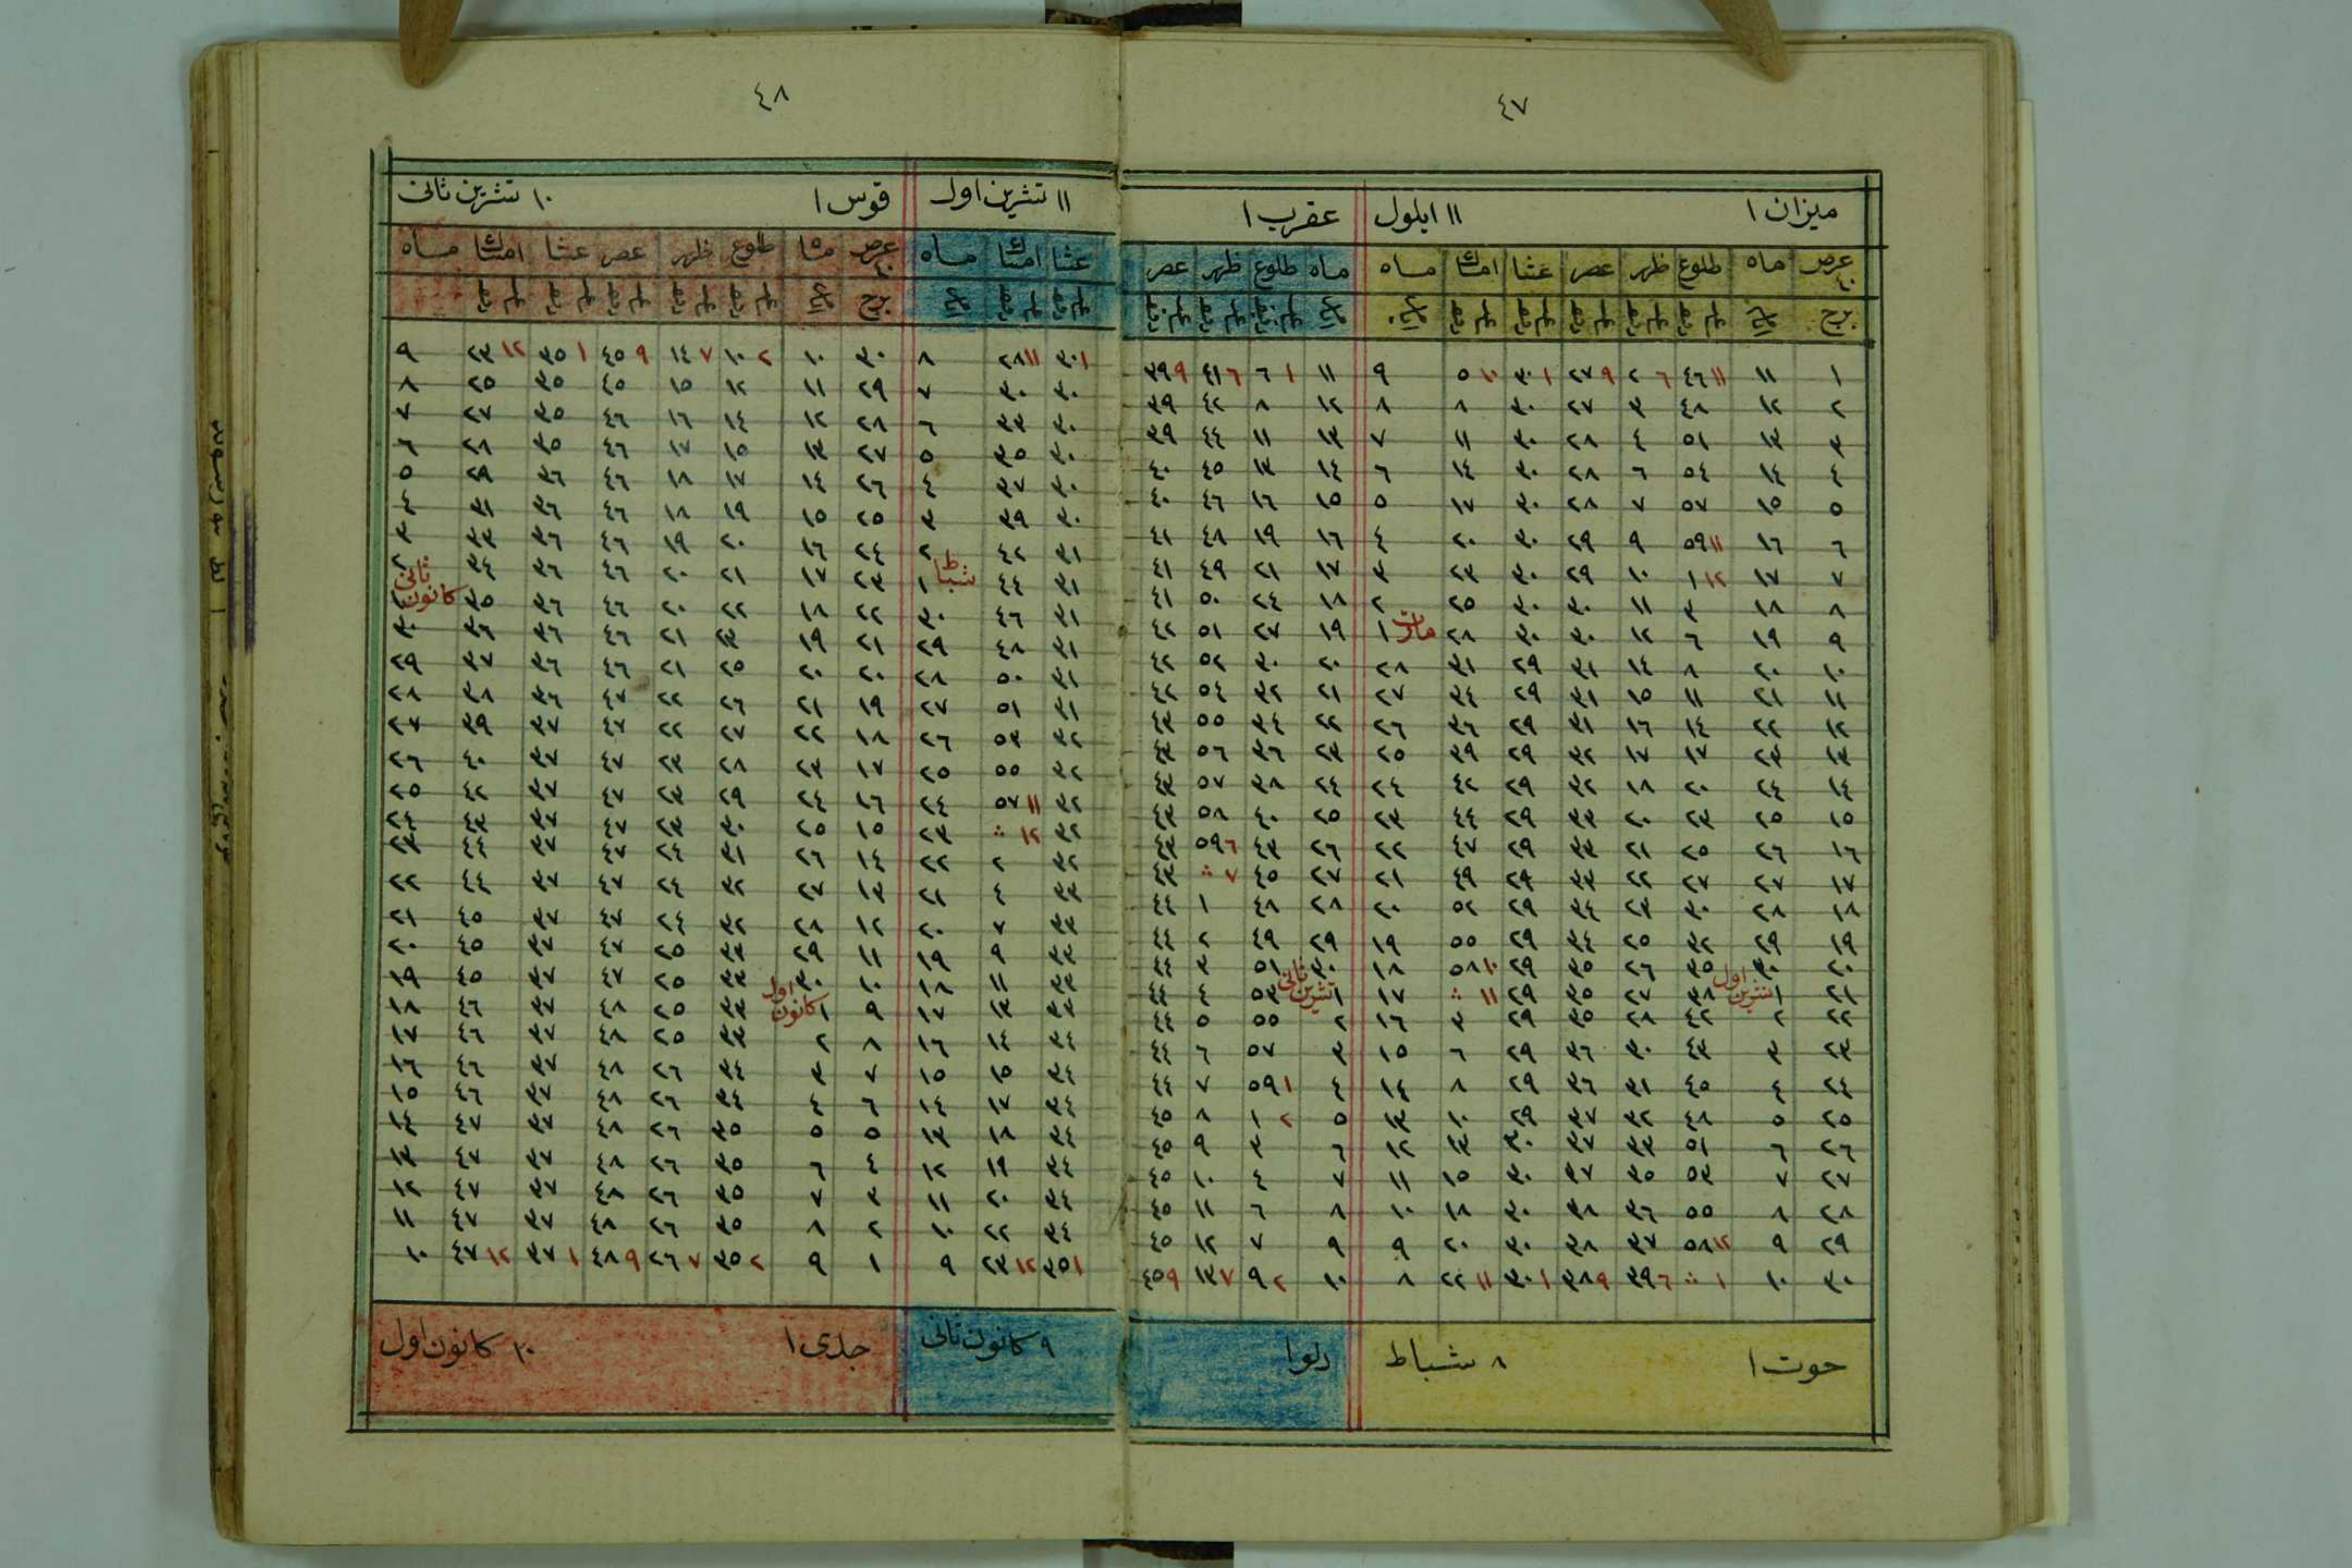 ٤٧
ميزان ١ ١١ ايلول عقرب ١
عرض ماه طلوع ظهر عصر عشا امساك ماه ماه طلوع ظهر عصر
برج
١ ١١ ١١ ٤٦ ٦ ٢ ٩ ٢٧ ١ ٣٠ ١٠ ٥ ٩ ١١ ١ ٦ ٦ ٤١ ٩ ٣٩
٢ ١٢ ٤٨ ٣ ٢٧ ٣٠ ٨ ٨ ١٢ ٨ ٤٢ ٣٩
٣ ١٣ ٥١ ٤ ٢٨ ٣٠ ١١ ٧ ١٣ ١١ ٤٤ ٣٩
٤ ١٤ ٥٤ ٦ ٢٨ ٣٠ ١٤ ٦ ١٤ ١٣ ٤٥ ٤٠
٥ ١٥ ٥٧ ٧ ٢٨ ٣٠ ١٧ ٥ ١٥ ١٦ ٤٦ ٤٠
٦ ١٦ ١١ ٥٩ ٩ ٢٩ ٣٠ ٢٠ ٤ ١٦ ١٩ ٤٨ ٤١
٧ ١٧ ١٢ ١ ١٠ ٢٩ ٣٠ ٢٣ ٣ ١٧ ٢١ ٤٩ ٤١
٨ ١٨ ٣ ١١ ٣٠ ٣٠ ٢٥ ٢ ١٨ ٢٤ ٥٠ ٤١
٩ ١٩ ٦ ١٢ ٣٠ ٣٠ ٢٨ مارت ١ ١٩ ٢٧ ٥١ ٤٢
١٠ ٢٠ ٨ ١٤ ٣١ ٢٩ ٣١ ٢٨ ٢٠ ٣٠ ٥٢ ٤٢
١١ ٢١ ١١ ١٥ ٣١ ٢٩ ٣٤ ٢٧ ٢١ ٣٢ ٥٤ ٤٢
١٢ ٢٢ ١٤ ١٦ ٣١ ٢٩ ٣٦ ٢٦ ٢٢ ٣٤ ٥٥ ٤٣
١٣ ٢٣ ١٧ ١٧ ٣٢ ٢٩ ٣٩ ٢٥ ٢٣ ٣٦ ٥٦ ٤٣
١٤ ٢٤ ٢٠ ١٨ ٣٢ ٢٩ ٤٢ ٢٤ ٢٤ ٣٨ ٥٧ ٤٣
١٥ ٢٥ ٢٣ ٢٠ ٣٣ ٢٩ ٤٤ ٢٣ ٢٥ ٤٠ ٥٨ ٤٣
١٦ ٢٦ ٢٥ ٢١ ٣٣ ٢٩ ٤٧ ٢٢ ٢٦ ٤٣ ٦ ٥٩ ٤٣
١٧ ٢٧ ٢٧ ٢٢ ٣٣ ٢٩ ٤٩ ٢١ ٢٧ ٤٥ ٧ ∴ ٤٣
١٨ ٢٨ ٣٠ ٢٣ ٣٤ ٢٩ ٥٢ ٢٠ ٢٨ ٤٨ ١ ٤٤
١٩ ٢٩ ٣٢ ٢٥ ٣٤ ٢٩ ٥٥ ١٩ ٢٩ ٤٩ ٢ ٤٤
٢٠ ٣٠ ٣٥ ٢٦ ٣٥ ٢٩ ١٠ ٥٨ ١٨ ٣٠ ٥١ ٣ ٤٤
٢١ ١ تشرين اول ٣٨ ٢٧ ٣٥ ٢٩ ١١ ∴ ١٧ ١ تشرين ثانى ٥٣ ٤ ٤٤
٢٢ ٢ ٤٢ ٢٨ ٣٥ ٢٩ ٣ ١٦ ٢ ٥٥ ٥ ٤٤
٢٣ ٣ ٤٣ ٣٠ ٣٦ ٢٩ ٦ ١٥ ٣ ٥٧ ٦ ٤٤
٢٤ ٤ ٤٥ ٣١ ٣٦ ٢٩ ٨ ١٤ ٤ ١ ٥٩ ٧ ٤٤
٢٥ ٥ ٤٨ ٣٢ ٣٧ ٢٩ ١٠ ١٣ ٥ ٢ ١ ٨ ٤٥
٢٦ ٦ ٥١ ٣٣ ٣٧ ٣٠ ١٣ ١٢ ٦ ٣ ٩ ٤٥
٢٧ ٧ ٥٣ ٣٥ ٣٧ ٣٠ ١٥ ١١ ٧ ٤ ١٠ ٤٥
٢٨ ٨ ٥٥ ٣٦ ٣٨ ٣٠ ١٨ ١٠ ٨ ٦ ١١ ٤٥
٢٩ ٩ ١٢ ٥٨ ٣٧ ٣٨ ٣٠ ٢٠ ٩ ٩ ٧ ١٢ ٤٥
٣٠ ١٠ ١ ∴ ٦ ٣٩ ٩ ٣٨ ١ ٣٠ ١١ ٢٢ ٨ ١٠ ٢ ٩ ٧ ١٣ ٩ ٤٥
حوت ١ ٨ شباط دلو ١
٤٨
١١ تشرين اول قوس ١ ١٠ تشرين ثانى
عشا امساك ماه عرض ماه طلوع ظهر عصر عشا امساك ماه
برج
١ ٣٠ ١١ ٢٨ ٨ ٣٠ ١٠ ٢ ١٠ ٧ ١٤ ٩ ٤٥ ١ ٣٥ ١٢ ٢٣ ٩
٣٠ ٣٠ ٧ ٢٩ ١١ ١٢ ١٥ ٤٥ ٣٥ ٢٥ ٨
٣٠ ٣٣ ٦ ٢٨ ١٢ ١٤ ١٦ ٤٦ ٣٥ ٢٧ ٧
٣٠ ٣٥ ٥ ٢٧ ١٣ ١٥ ١٧ ٤٦ ٣٥ ٢٨ ٦
٣٠ ٣٧ ٤ ٢٦ ١٤ ١٧ ١٨ ٤٦ ٣٦ ٢٩ ٥
٣٠ ٣٩ ٣ ٢٥ ١٥ ١٩ ١٨ ٤٦ ٣٦ ٣١ ٤
٣١ ٤٢ ٢ ٢٤ ١٦ ٢٠ ١٩ ٤٦ ٣٦ ٣٣ ٣
٣١ ٤٤ شباط ١ ٢٣ ١٧ ٢١ ٢٠ ٤٦ ٣٦ ٣٤ ٢
٣١ ٤٦ ٣٠ ٢٢ ١٨ ٢٢ ٢٠ ٤٦ ٣٦ ٣٥ كانون ثانى ١
٣١ ٤٨ ٢٩ ٢١ ١٩ ٢٣ ٢١ ٤٦ ٣٦ ٣٦ ٣٠
٣١ ٥٠ ٢٨ ٢٠ ٢٠ ٢٥ ٢١ ٤٦ ٣٦ ٣٧ ٢٩
٣١ ٥١ ٢٧ ١٩ ٢١ ٢٦ ٢٢ ٤٧ ٣٦ ٣٨ ٢٨
٣٢ ٥٣ ٢٦ ١٨ ٢٢ ٢٧ ٢٢ ٤٧ ٣٧ ٣٩ ٢٧
٣٢ ٥٥ ٢٥ ١٧ ٢٣ ٢٨ ٢٣ ٤٧ ٣٧ ٤٠ ٢٦
٣٢ ١١ ٥٧ ٢٤ ١٦ ٢٤ ٢٩ ٢٣ ٤٧ ٣٧ ٤٢ ٢٥
٣٢ ١٢ ∴ ٢٣ ١٥ ٢٥ ٣٠ ٢٣ ٤٧ ٣٧ ٤٣ ٢٤
٣٢ ٢ ٢٢ ١٤ ٢٦ ٣١ ٢٤ ٤٧ ٣٧ ٤٤ ٢٣
٣٣ ٤ ٢١ ١٣ ٢٧ ٣٢ ٢٤ ٤٧ ٣٧ ٤٤ ٢٢
٣٣ ٧ ٢٠ ١٢ ٢٨ ٣٢ ٢٤ ٤٧ ٣٧ ٤٥ ٢١
٣٣ ٩ ١٩ ١١ ٢٩ ٣٣ ٢٥ ٤٧ ٣٧ ٤٥ ٢٠
٣٣ ١١ ١٨ ١٠ ٣٠ ٣٣ ٢٥ ٤٧ ٣٧ ٤٥ ١٩
٣٣ ١٣ ١٧ ٩ ١ كانون اول ٣٣ ٢٥ ٤٨ ٣٧ ٤٦ ١٨
٣٤ ١٤ ١٦ ٨ ٢ ٣٣ ٢٥ ٤٨ ٣٧ ٤٦ ١٧
٣٤ ١٥ ١٥ ٧ ٣ ٣٤ ٢٦ ٤٨ ٣٧ ٤٦ ١٦
٣٤ ١٧ ١٤ ٦ ٤ ٣٤ ٢٦ ٤٨ ٣٧ ٤٦ ١٥
٣٤ ١٨ ١٣ ٥ ٥ ٣٥ ٢٦ ٤٨ ٣٧ ٤٧ ١٤
٣٤ ١٩ ١٢ ٤ ٦ ٣٥ ٢٦ ٤٨ ٣٧ ٤٧ ١٣
٣٤ ٢٠ ١١ ٣ ٧ ٣٥ ٢٦ ٤٨ ٣٧ ٤٧ ١٢
٣٤ ٢٢ ١٠ ٢ ٨ ٣٥ ٢٦ ٤٨ ٣٧ ٤٧ ١١
١ ٣٥ ١٢ ٢٣ ٩ ١ ٩ ٢ ٣٥ ٧ ٢٦ ٩ ٤٨ ١ ٣٧ ١٢ ٤٧ ١٠
٩ كانون ثانى جدى ١ ١٠ كانون اول